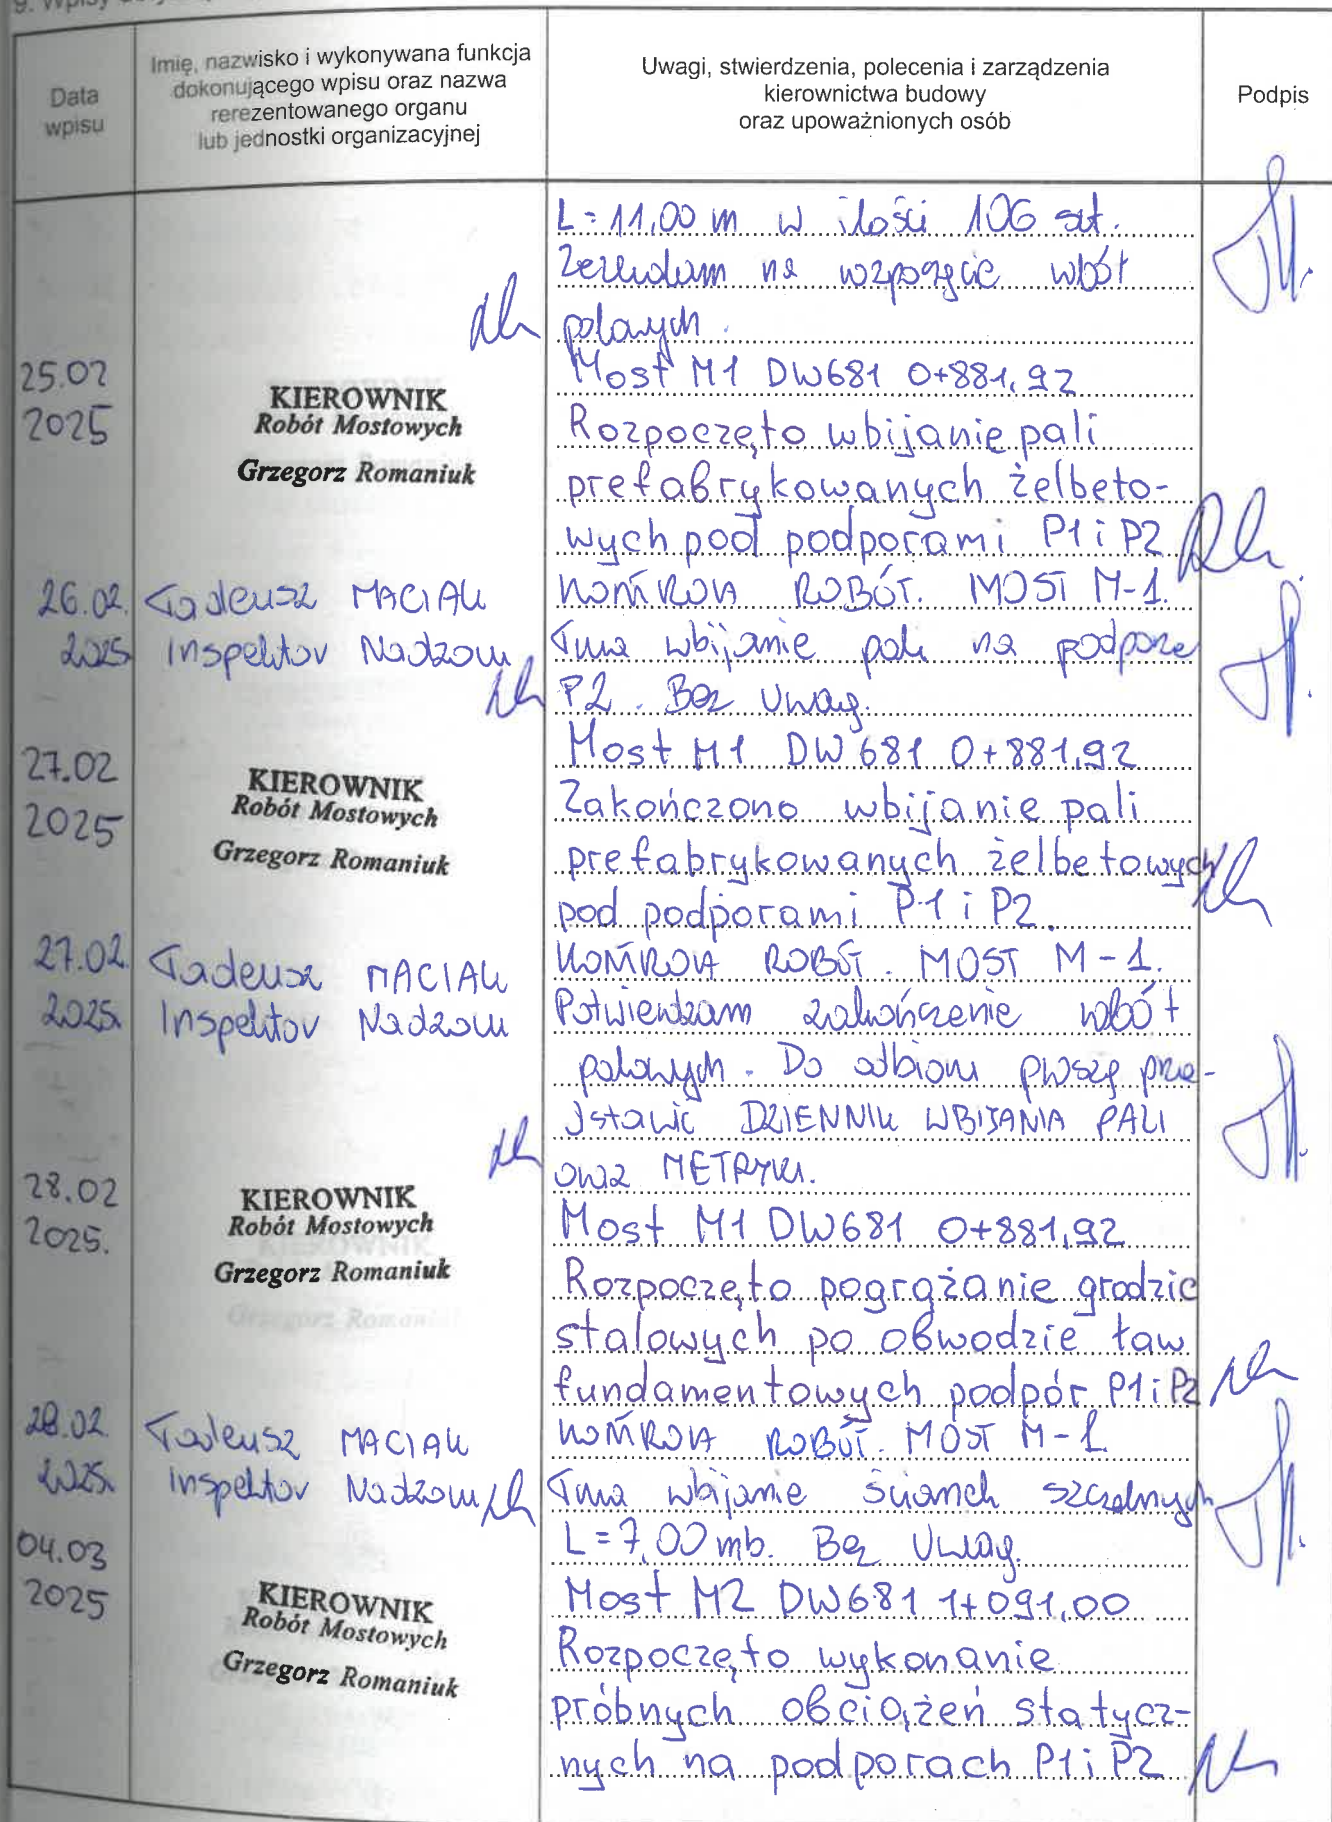 9. Wpisy
Data
wpisu
Imię, nazwisko i wykonywana funkcja
dokonującego wpisu oraz nazwa
rerezentowanego organu
lub jednostki organizacyjnej
Uwagi, stwierdzenia, polecenia i zarządzenia
kierownictwa budowy
oraz upoważnionych osób
Podpis
L=11,00 m w ilości 106 szt.
Zezwalam na rozpoczęcie robót
palowych.
25.02
2025
KIEROWNIK
Robót Mostowych
Grzegorz Romaniuk
Most M1 DW681 0+881,92
Rozpoczęto wbijanie pali
prefabrykowanych żelbeto-
wych pod podporami P1 i P2
26.02.
2025
Tadeusz MACIAK
Inspektor Nadzoru
KONTROLA ROBÓT. MOST M-1.
Trwa wbijanie pali na podporze
P2. Bez uwag.
27.02
2025
KIEROWNIK
Robót Mostowych
Grzegorz Romaniuk
Most M1 DW 681 0+881,92
Zakończono wbijanie pali
prefabrykowanych żelbetowych
pod podporami P1 i P2.
27.02.
2025.
Tadeusz MACIAK
Inspektor Nadzoru
KONTROLA ROBÓT. MOST M-1.
Potwierdzam zakończenie robót
palowych. Do odbioru proszę prze-
dstawić DZIENNIK WBIJANIA PALI
oraz METRYKI.
28.02
2025.
KIEROWNIK
Robót Mostowych
Grzegorz Romaniuk
Most M1 DW681 0+881,92
Rozpoczęto pogrążanie grodzic
stalowych po obwodzie ław
fundamentowych podpór P1 i P2
28.02.
2025.
Tadeusz MACIAK
Inspektor Nadzoru
KONTROLA ROBÓT. MOST M-1
Trwa wbijanie ścianek szczelnych
L=7,00 mb. Bez uwag.
04.03
2025
KIEROWNIK
Robót Mostowych
Grzegorz Romaniuk
Most M2 DW681 1+091,00
Rozpoczęto wykonanie
próbnych obciążeń statycz-
nych na podporach P1 i P2